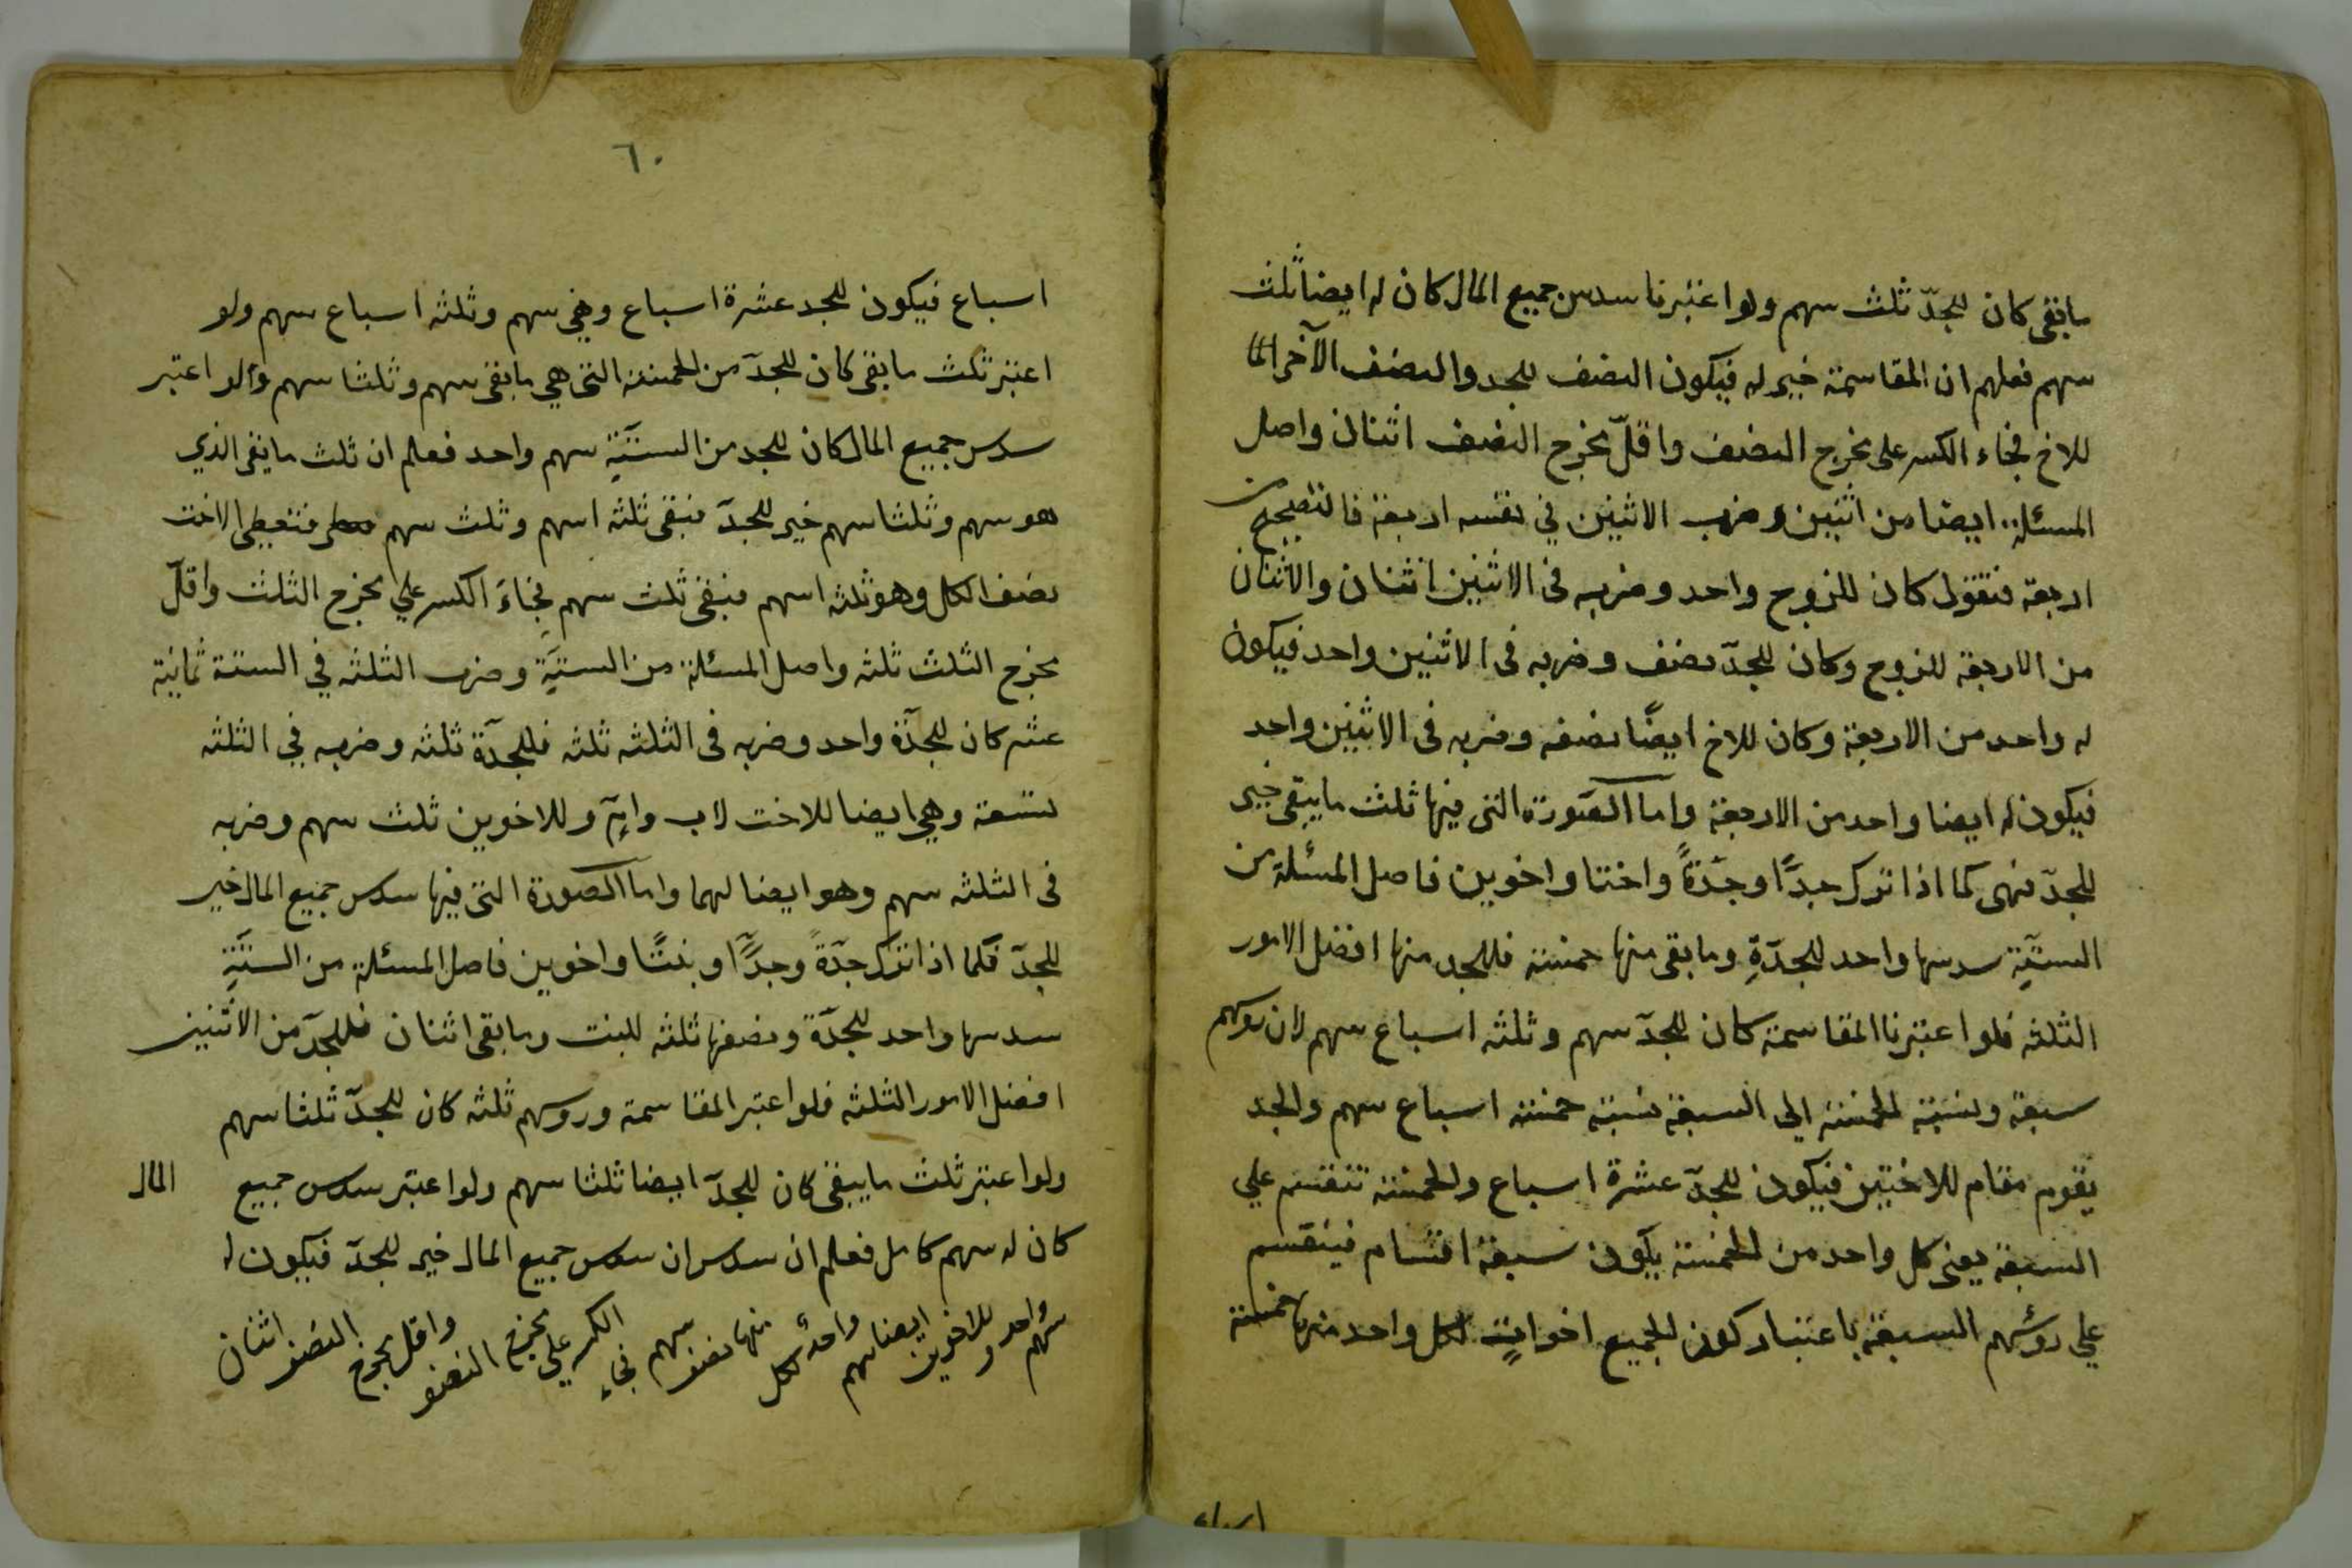 مابقى كان للجدّ ثلث سهم ولو اعتبرنا سدس جميع المال كان له ايضا ثلث
سهم فعلم ان المقاسمة خير له فيكون النصف للجد والنصف الآخر
للاخ فجاء الكسر على مخرج النصف واقلّ مخرج النصف اثنان واصل
المسئلة ايضا من اثنين وضرب الاثنين في نفسه اربعة فالتصحيح من
اربعة فنقول كان للزوج واحد وضربه فى الاثنين اثنان والاثنان
من الاربعة للزوج وكان للجدّ نصف وضربه فى الاثنين واحد فيكون
له واحد من الاربعة وكان للاخ ايضًا نصفه وضربه فى الاثنين واحد
فيكون له ايضا واحد من الاربعة واما الصورة التى فيها ثلث مايبقى خير
للجدّ فهى كما اذا ترك جدًّا وجدّةً واختا واخوين فاصل المسئلة من
الستّةِ سدسها واحد للجدّةِ ومابقى منها خمسة فللجد منها افضل الامور
الثلثه فلو اعتبرنا المقاسمة كان للجدّ سهم وثلثه اسباع سهم لان روسهم
سبعة ونسبة الخمسة الى السبعة نسبة خمسة اسباع سهم والجد
يقوم مقام للاختين فيكون للجدّ عشرة اسباع والخمسة تنقسم علي
السبعة يعنى كل واحد من الخمسة يكون سبعة اقسام فينقسم
علي رؤسهم السبعة باعتبار كون الجميع اخوات لكل واحد منها خمسة
اسباع
٦٠
اسباع فيكون للجد عشرة اسباع وهي سهم وثلثه اسباع سهم ولو
اعتبر ثلث مابقى كان للجدّ من الخمسة التى هي مابقى سهم وثلثا سهم ولو اعتبر
سدس جميع المال كان للجد من الستّةِ سهم واحد فعلم ان ثلث مابقى الذي
هو سهم وثلثا سهم خير للجدّ فبقى ثلثه اسهم وثلث سهم فتعطى الاخت
نصف الكل وهو ثلثه اسهم فبقى ثلث سهم فجاءَ الكسر علي مخرج الثلث واقلّ
مخرج الثلث ثلثه واصل المسئلة من الستةِ وضرب الثلثه في الستة ثمانية
عشر كان للجدّة واحد وضربه فى الثلثه ثلثه فللجدّة ثلثه وضربه في الثلثه
تسعة وهي ايضا للاخت لاب وامّ وللاخوين ثلث سهم وضربه
فى الثلثه سهم وهو ايضا لهما واما الصورة التى فيها سدس جميع المال خير
للجدّ فكما اذا ترك جدّةً وجدًّا وبنتًا واخوين فاصل المسئلة من الستّةِ
سدسها واحد للجدّة ونصفها ثلثه للبنت ومابقى اثنان فللجدّ من الاثنين
افضل الامور الثلثه فلو اعتبر المقاسمة وروسهم ثلثه كان للجدّ ثلثا سهم
ولو اعتبر ثلث مايبقى كان للجدّ ايضا ثلثا سهم ولو اعتبر سدس جميع المال
كان له سهم كامل فعلم ان سدس ان سدس جميع المال خير للجدّ فيكون له
سهم واحد وللاخوين ايضا سهم واحد لكل منها نصف سهم فجاء الكسر علي مخرج النصف واقل مخرج النصف اثنان